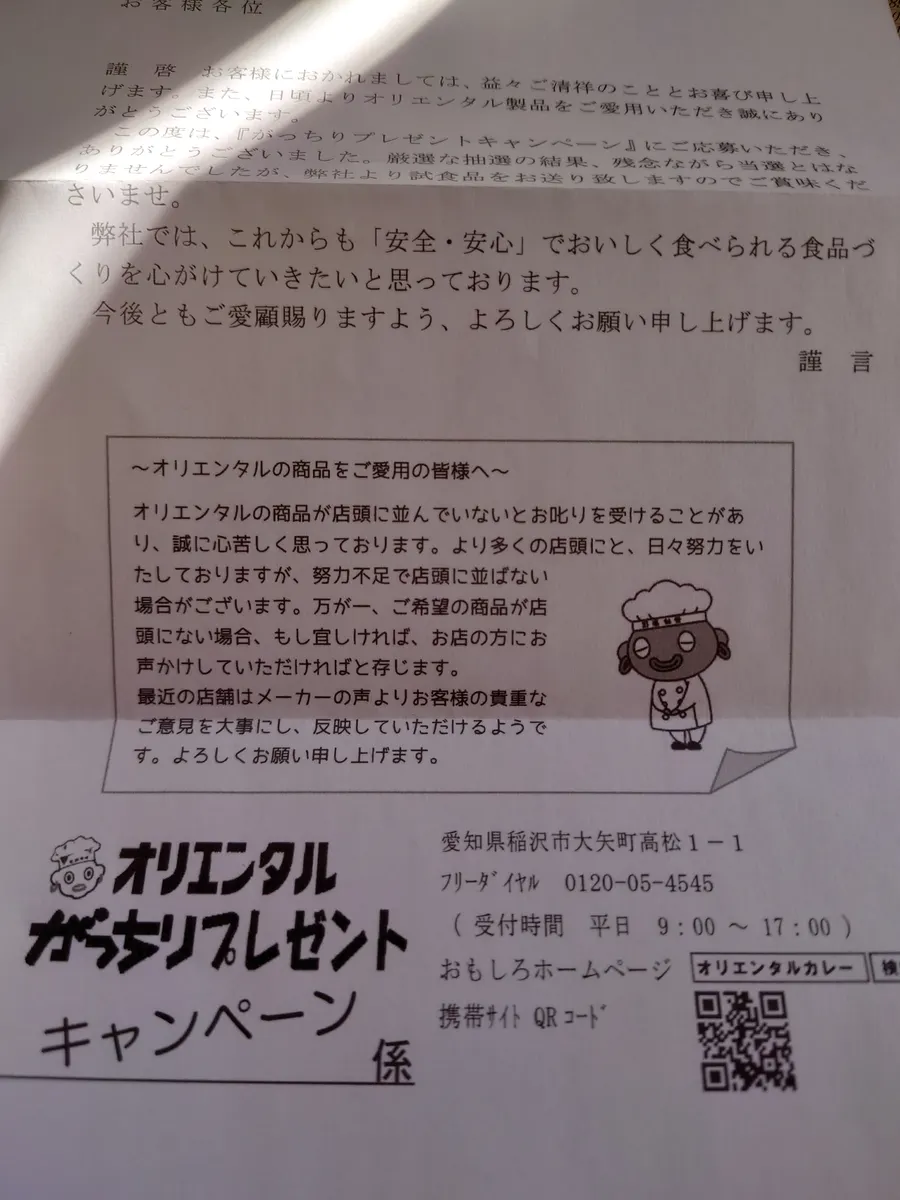 お客様各位
謹　啓　お客様におかれましては、益々ご清祥のこととお喜び申し上
げます。また、日頃よりオリエンタル製品をご愛用いただき誠にあり
がとうございます。
この度は、『がっちりプレゼントキャンペーン』にご応募いただき、
ありがとうございました。厳選な抽選の結果、残念ながら当選とはな
りませんでしたが、弊社より試食品をお送り致しますのでご賞味くだ
さいませ。
弊社では、これからも「安全・安心」でおいしく食べられる食品づ
くりを心がけていきたいと思っております。
今後ともご愛顧賜りますよう、よろしくお願い申し上げます。
謹　言
～オリエンタルの商品をご愛用の皆様へ～
オリエンタルの商品が店頭に並んでいないとお叱りを受けることがあ
り、誠に心苦しく思っております。より多くの店頭にと、日々努力をい
たしておりますが、努力不足で店頭に並ばない
場合がございます。万が一、ご希望の商品が店
頭にない場合、もし宜しければ、お店の方にお
声かけしていただければと存じます。
最近の店舗はメーカーの声よりお客様の貴重な
ご意見を大事にし、反映していただけるようで
す。よろしくお願い申し上げます。
オリエンタル
がっちりプレゼント
キャンペーン
係
愛知県稲沢市大矢町高松１－１
ﾌﾘｰﾀﾞｲﾔﾙ　0120-05-4545
（ 受付時間　平日　9：00 ～ 17：00 ）
おもしろホームページ　オリエンタルカレー　検
携帯ｻｲﾄ QRｺｰﾄﾞ